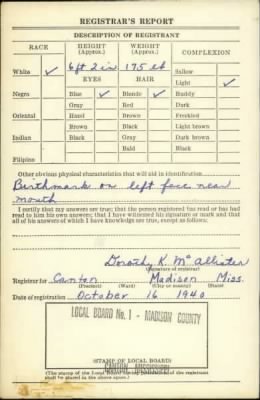 REGISTRAR'S REPORT
DESCRIPTION OF REGISTRANT
RACE HEIGHT (Approx.) WEIGHT (Approx.) COMPLEXION
6ft 2 in 175 lb Sallow
White ✓ EYES HAIR Light ✓
Negro Blue ✓ Blonde ✓ Ruddy
Gray Red Dark
Oriental Hazel Brown Freckled
Brown Black Light brown
Indian Black Gray Dark brown
Bald Black
Filipino
Other obvious physical characteristics that will aid in identification
Birthmark on left face near
mouth
I certify that my answers are true; that the person registered has read or has had
read to him his own answers; that I have witnessed his signature or mark and that
all of his answers of which I have knowledge are true, except as follows:
Dorothy K. McAllister
(Signature of registrar)
Registrar for Canton Madison Miss.
(Precinct) (Ward) (City or county) (State)
Date of registration October 16 1940
LOCAL BOARD No. 1 - MADISON COUNTY
CANTON, MISSISSIPPI
(STAMP OF LOCAL BOARD)
(The stamp of the Local Board having jurisdiction of the registrant
shall be placed in the above space.)